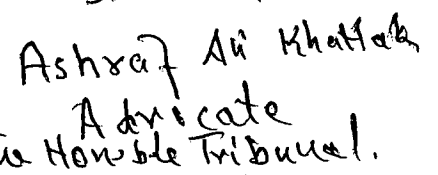 Ashraf Ali Khattak
Advocate
Hon'ble Tribunal.